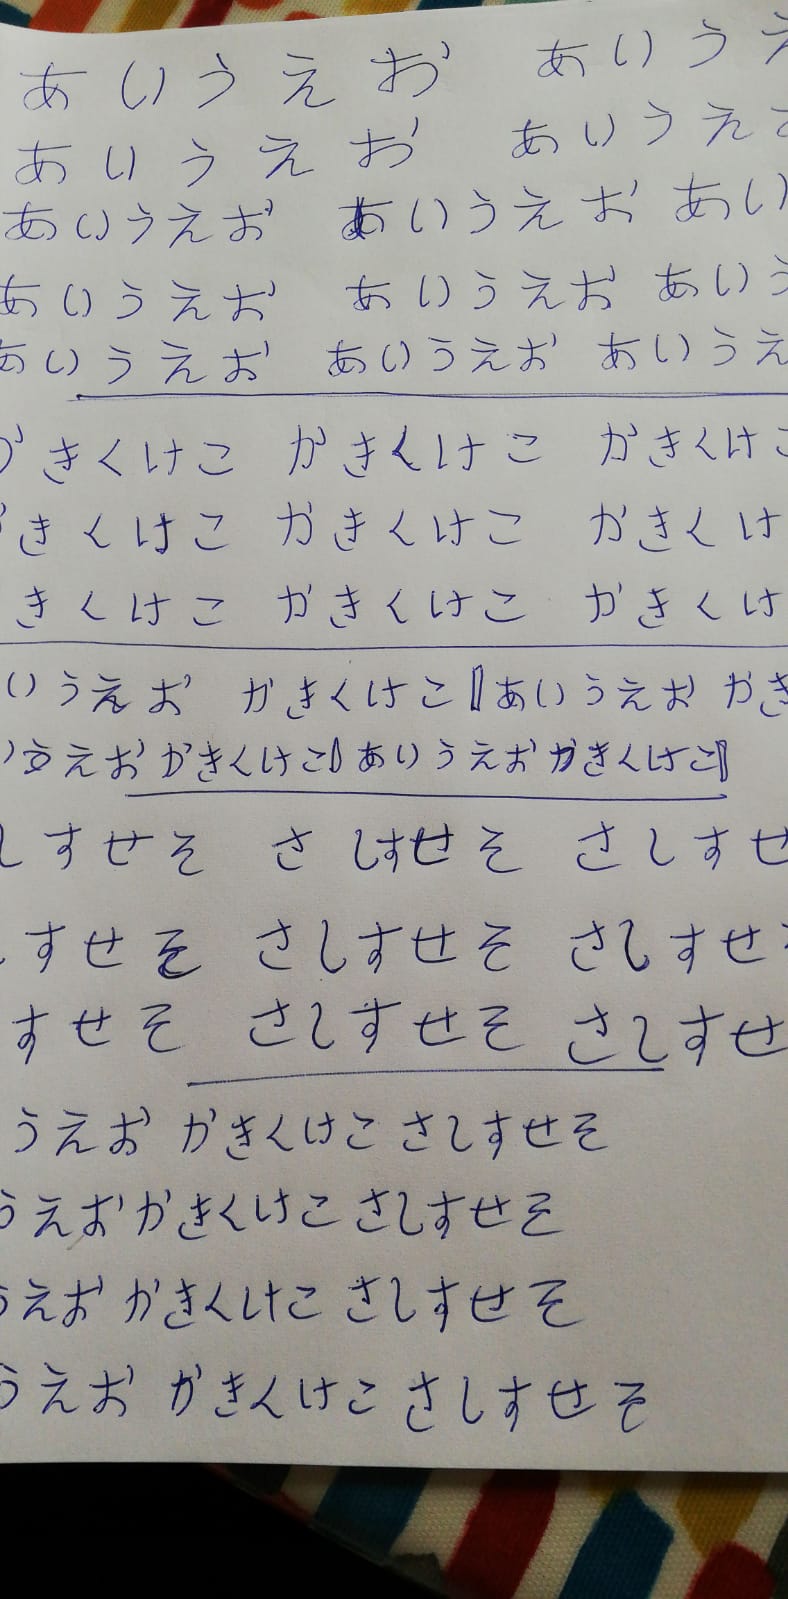 あいうえお あいうえ
あいうえお あいうえ
あいうえお あいうえお あい
あいうえお あいうえお あいう
あいうえお あいうえお あいうえ
か きくけこ かきくけこ かきくけこ
きくけこ かきくけこ かきくけ
きくけこ かきくけこ かきくけ
いうえお かきくけこ あいうえお かき
うえお かきくけこ あいうえお かきくけこ
しすせそ さしすせそ さしすせ
しすせそ さしすせそ さしすせ
すせそ さしすせそ さしすせ
うえお かきくけこ さしすせそ
うえお かきくけこ さしすせそ
うえお かきくけこ さしすせそ
うえお かきくけこ さしすせそ